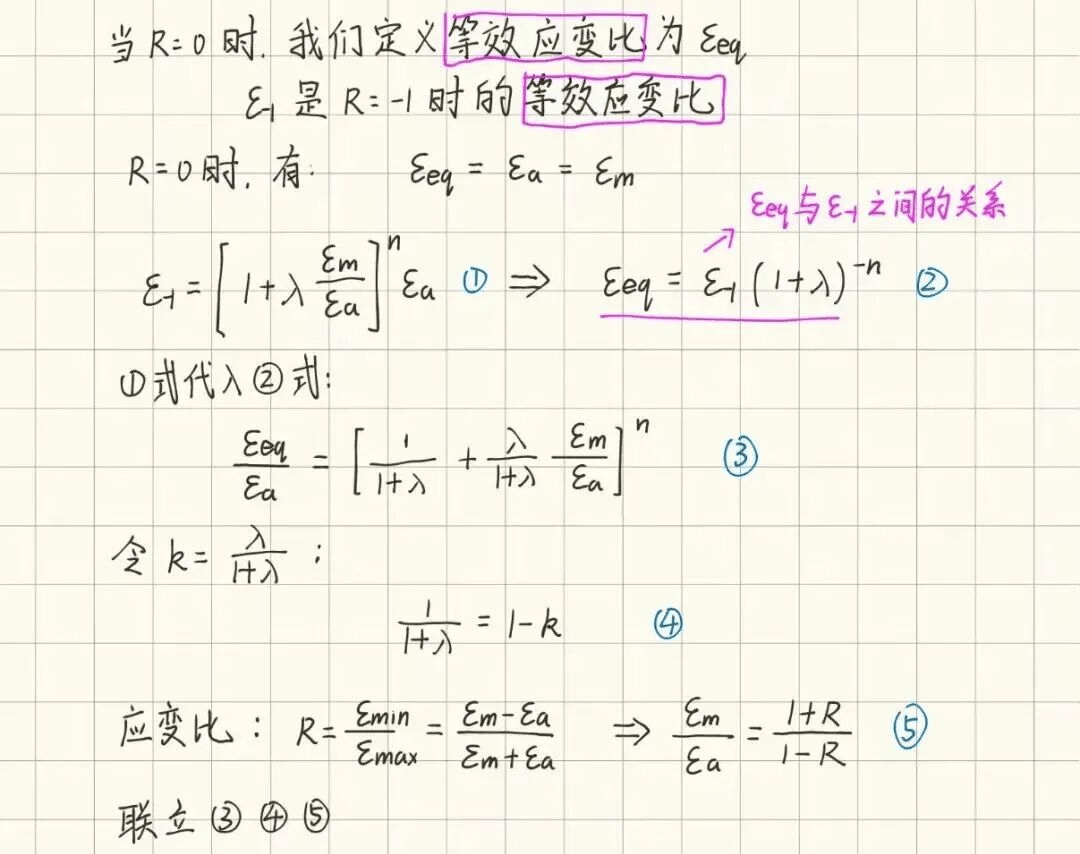 当 R=0 时, 我们定义等效应变比为 εeq
ε₋₁ 是 R=-1 时的等效应变比
R=0 时, 有: εeq = εa = εm
εeq与ε₋₁之间的关系
ε₋₁ = [1+λ εm/εa]ⁿ εa ① ⇒ εeq = ε₋₁ (1+λ)⁻ⁿ ②
①式代入②式:
εeq/εa = [1/(1+λ) + λ/(1+λ) εm/εa]ⁿ ③
令 k = λ/(1+λ) ;
1/(1+λ) = 1-k ④
应变比: R = εmin/εmax = (εm-εa)/(εm+εa) ⇒ εm/εa = (1+R)/(1-R) ⑤
联立 ③ ④ ⑤